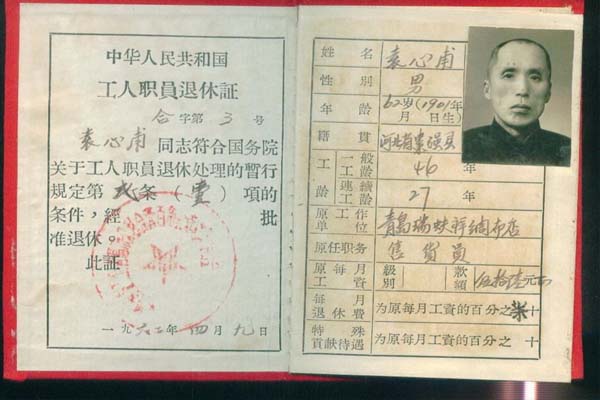 中华人民共和国
工人职员退休证
合字第3号
袁心甫同志符合国务院
关于工人职员退休处理的暂行
规定第弍条(壹)项的
条件，經批
准退休。
此証
一九六二年四月九日
姓名 袁心甫
性別 男
年龄 62岁(1901年
月日生)
籍貫 河北省棗强县
工龄 一般工龄 46年
連續工龄 27年
原工作单位 青島瑞蚨祥綢布店
原任职务 售貨員
原每月工資 級別 款額 伍拾陸元
每月退休費 为原每月工資的百分之柒十
特殊貢献待遇 为原每月工資的百分之十